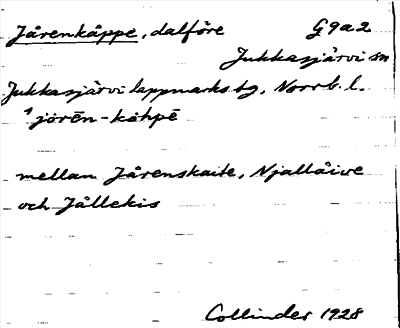 Jårenkåppe, dalföre G9a2
Jukkasjärvi sn
Jukkasjärvi lappmarks tg, Norrb. l.
jȯrēn-kȯhpē
mellan Jårenskaite, Njallåive
och Jållekis
Collinder 1928